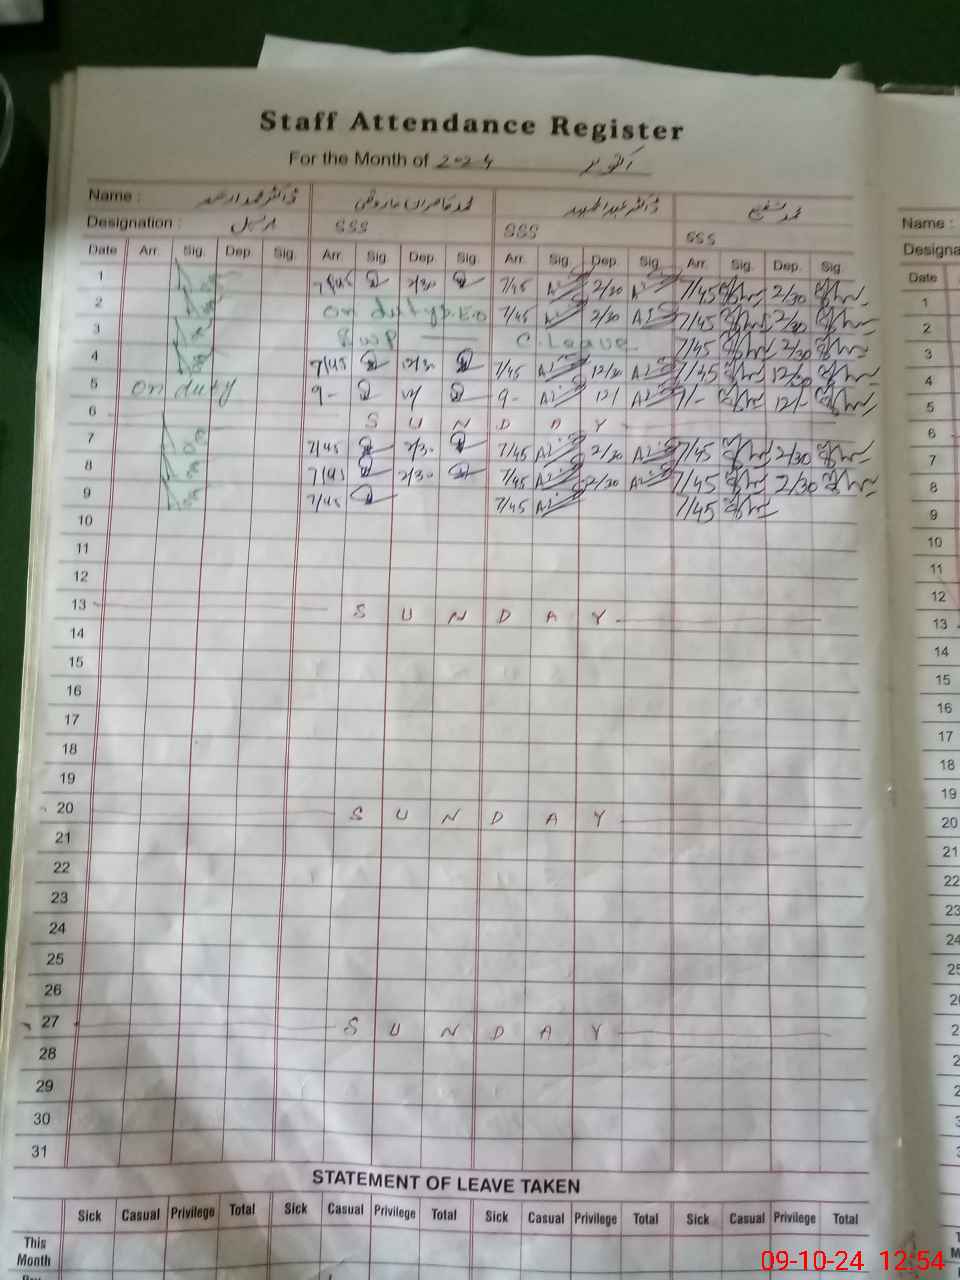 Staff Attendance Register
For the Month of 2024 اکتوبر
Name : ڈاکٹر محمد ارشد محمد کامران فاروقی ڈاکٹر عبدالحمید محمد شفیع
Designation : پرنسپل SSS SSS SSS
Date Arr. Sig. Dep. Sig. Arr. Sig. Dep. Sig. Arr. Sig. Dep. Sig. Arr. Sig. Dep. Sig.
1 7/45 2/30 7/45 2/30 7/45 2/30
2 on duty D.E.O 7/45 2/30 7/45 2/30
3 C. Leave 7/45 2/30
4 7/45 12/30 7/45 12/30 7/45 12/30
5 on duty 9- 12/ 9- 12/ 9/- 12/-
6 S U N D A Y
7 7/45 2/30 7/45 2/30 7/45 2/30
8 7/45 2/30 7/45 2/30 7/45 2/30
9 7/45 7/45 7/45
10
11
12
13 S U N D A Y
14
15
16
17
18
19
20 S U N D A Y
21
22
23
24
25
26
27 S U N D A Y
28
29
30
31
STATEMENT OF LEAVE TAKEN
Sick Casual Privilege Total Sick Casual Privilege Total Sick Casual Privilege Total Sick Casual Privilege Total
This
Month
Name :
Designa
Date
1
2
3
4
5
6
7
8
9
10
11
12
13
14
15
16
17
18
19
20
21
22
23
24
25
09-10-24 12:54